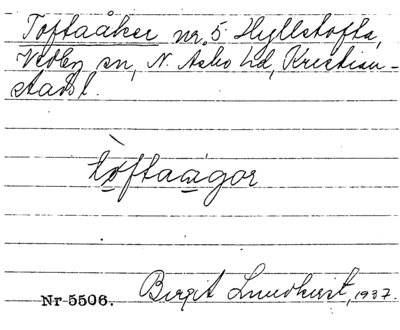 Toftaåker nr 5 Hyllstofta,
Vedby sn, N. Åsbo hd, Kristian-
stads l.
tòftaágor
Nr 5506. Birgit Lundkvist, 1937.